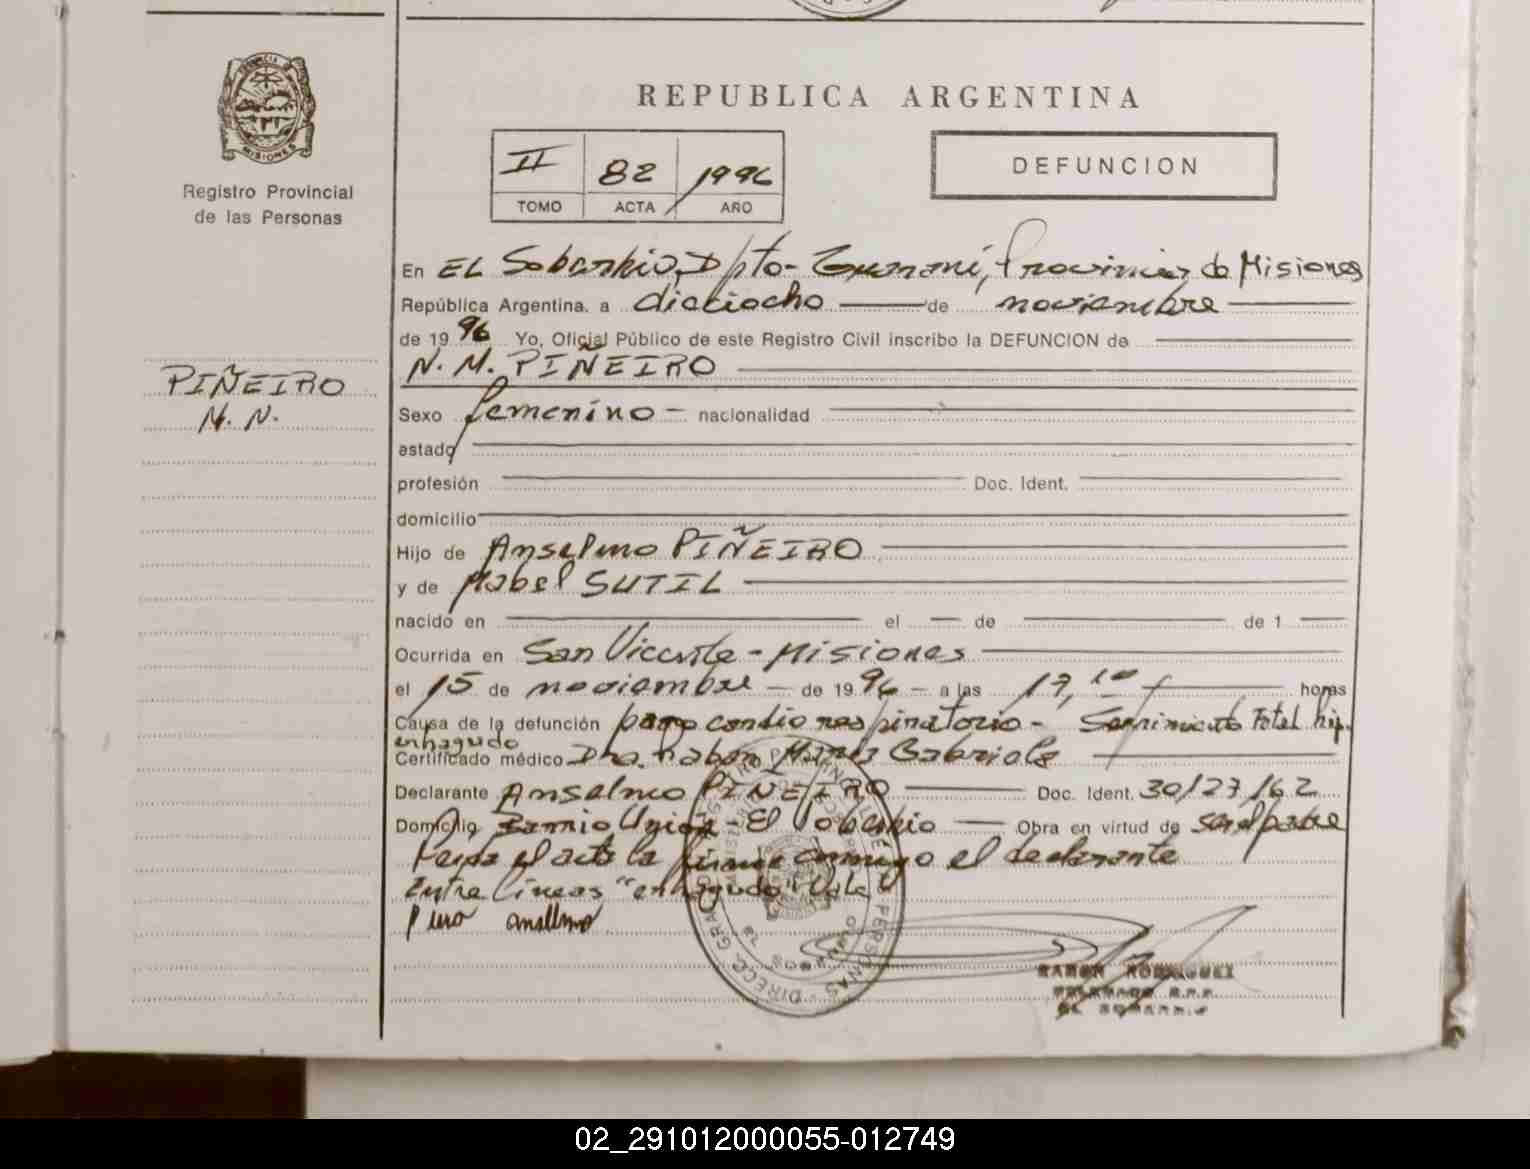 PROVINCIA DE
MISIONES
Registro Provincial
de las Personas
REPUBLICA ARGENTINA
II 82 1996
TOMO ACTA AÑO
DEFUNCION
En EL Soberbio, Dpto- Guaraní, Provincia de Misiones
República Argentina. a dieciocho de noviembre
de 1996 Yo, Oficial Público de este Registro Civil inscribo la DEFUNCION de
N. N. PIÑEIRO
PIÑEIRO
N. N.
Sexo femenino - nacionalidad
estado
profesión Doc. Ident.
domicilio
Hijo de Anselmo PIÑEIRO
y de Mabel SUTIL
nacido en el de de 1
Ocurrida en San Vicente - Misiones
el 15 de noviembre - de 1996 - a las 17,10 horas
Causa de la defunción paro cardio respiratorio - Sufrimiento Fetal hip.
enhagudo
Certificado médico Dra. María Gabriela
Declarante Anselmo PIÑEIRO Doc. Ident. 30/27/62
Domicilio Barrio Unión - El Soberbio Obra en virtud de ser el padre
el acta la firma conmigo el declarante
Entre líneas "enhagudo" Vale
anselmo
RAMON RODRIGUEZ
DELEGADO R.P.P.
EL SOBERBIO
02_291012000055-012749